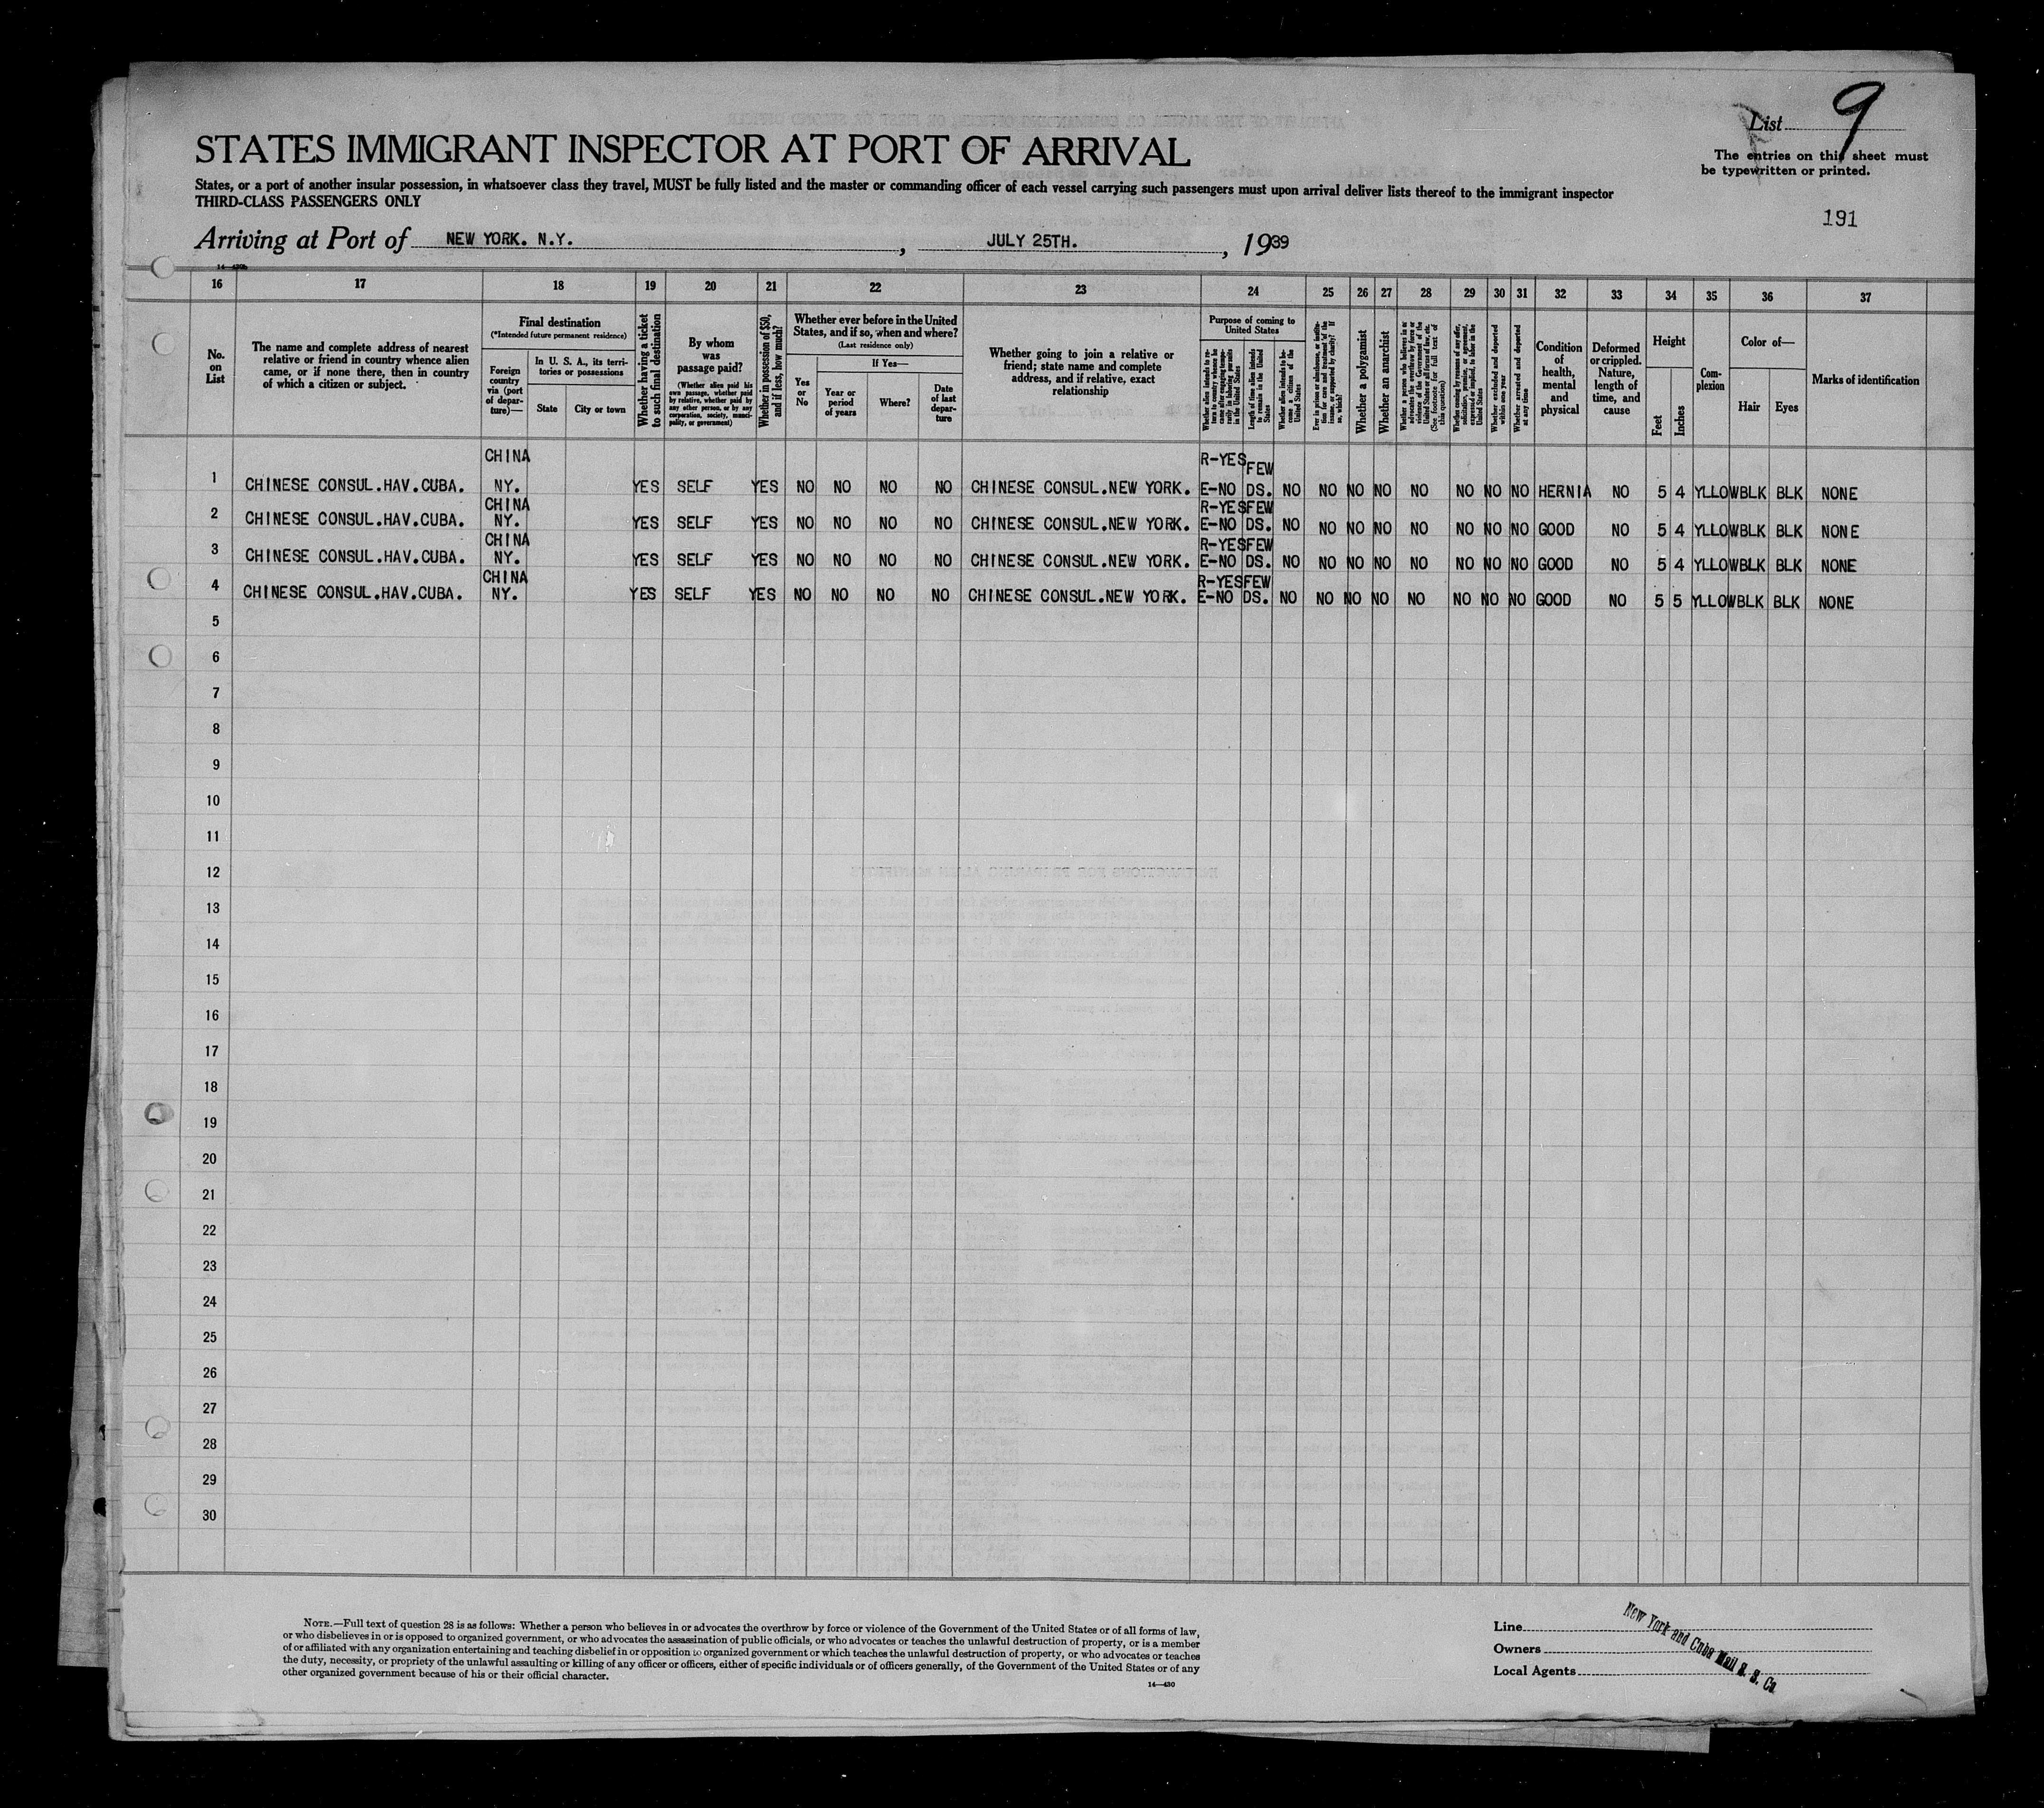 List 9
STATES IMMIGRANT INSPECTOR AT PORT OF ARRIVAL
The entries on this sheet must
be typewritten or printed.
States, or a port of another insular possession, in whatsoever class they travel, MUST be fully listed and the master or commanding officer of each vessel carrying such passengers must upon arrival deliver lists thereof to the immigrant inspector
THIRD-CLASS PASSENGERS ONLY
191
Arriving at Port of NEW YORK. N.Y., JULY 25TH., 1939
16 17 18 19 20 21 22 23 24 25 26 27 28 29 30 31 32 33 34 35 36 37
No. on List
The name and complete address of nearest
relative or friend in country whence alien
came, or if none there, then in country
of which a citizen or subject.
Final destination
(*Intended future permanent residence)
Foreign country via (port of departure)—
In U. S. A., its territories or possessions
State
City or town
Whether having a ticket to such final destination
By whom was passage paid?
(Whether alien paid his own passage, whether paid by relative, whether paid by any other person, or by any corporation, society, municipality, or government)
Whether in possession of $50, and if less, how much?
Whether ever before in the United States, and if so, when and where?
(Last residence only)
Yes or No
If Yes—
Year or period of years
Where?
Date of last departure
Whether going to join a relative or
friend; state name and complete
address, and if relative, exact
relationship
Purpose of coming to United States
Whether alien intends to return to country whence he came after engaging temporarily in laboring pursuits in the United States
Length of time alien intends to remain in the United States
Whether alien intends to become a citizen of the United States
Ever in prison or almshouse, or institution for care and treatment of the insane, or supported by charity? If so, which?
Whether a polygamist
Whether an anarchist
Whether a person who believes in or advocates the overthrow by force or violence of the Government of the United States or all forms of law, etc. (See footnote for full text of this question)
Whether coming by reason of any offer, solicitation, promise, or agreement, expressed or implied, to labor in the United States
Whether excluded and deported within one year
Whether arrested and deported at any time
Condition of health, mental and physical
Deformed or crippled. Nature, length of time, and cause
Height
Feet
Inches
Complexion
Color of—
Hair
Eyes
Marks of identification
CHINA R-YES FEW
1 CHINESE CONSUL.HAV.CUBA. NY. YES SELF YES NO NO NO NO CHINESE CONSUL.NEW YORK. E-NO DS. NO NO NO NO NO NO NO NO HERNIA NO 5 4 YLLOW BLK BLK NONE
CHINA R-YES FEW
2 CHINESE CONSUL.HAV.CUBA. NY. YES SELF YES NO NO NO NO CHINESE CONSUL.NEW YORK. E-NO DS. NO NO NO NO NO NO NO NO GOOD NO 5 4 YLLOW BLK BLK NONE
CHINA R-YES FEW
3 CHINESE CONSUL.HAV.CUBA. NY. YES SELF YES NO NO NO NO CHINESE CONSUL.NEW YORK. E-NO DS. NO NO NO NO NO NO NO NO GOOD NO 5 4 YLLOW BLK BLK NONE
CHINA R-YES FEW
4 CHINESE CONSUL.HAV.CUBA. NY. YES SELF YES NO NO NO NO CHINESE CONSUL.NEW YORK. E-NO DS. NO NO NO NO NO NO NO NO GOOD NO 5 5 YLLOW BLK BLK NONE
5
6
7
8
9
10
11
12
13
14
15
16
17
18
19
20
21
22
23
24
25
26
27
28
29
30
NOTE.—Full text of question 28 is as follows: Whether a person who believes in or advocates the overthrow by force or violence of the Government of the United States or of all forms of law,
or who disbelieves in or is opposed to organized government, or who advocates the assassination of public officials, or who advocates or teaches the unlawful destruction of property, or is a member
of or affiliated with any organization entertaining and teaching disbelief in or opposition to organized government or which teaches the unlawful destruction of property, or who advocates or teaches
the duty, necessity, or propriety of the unlawful assaulting or killing of any officer or officers, either of specific individuals or of officers generally, of the Government of the United States or of any
other organized government because of his or their official character.
14—430
Line
Owners
Local Agents
New York and Cuba Mail S. S. Co.